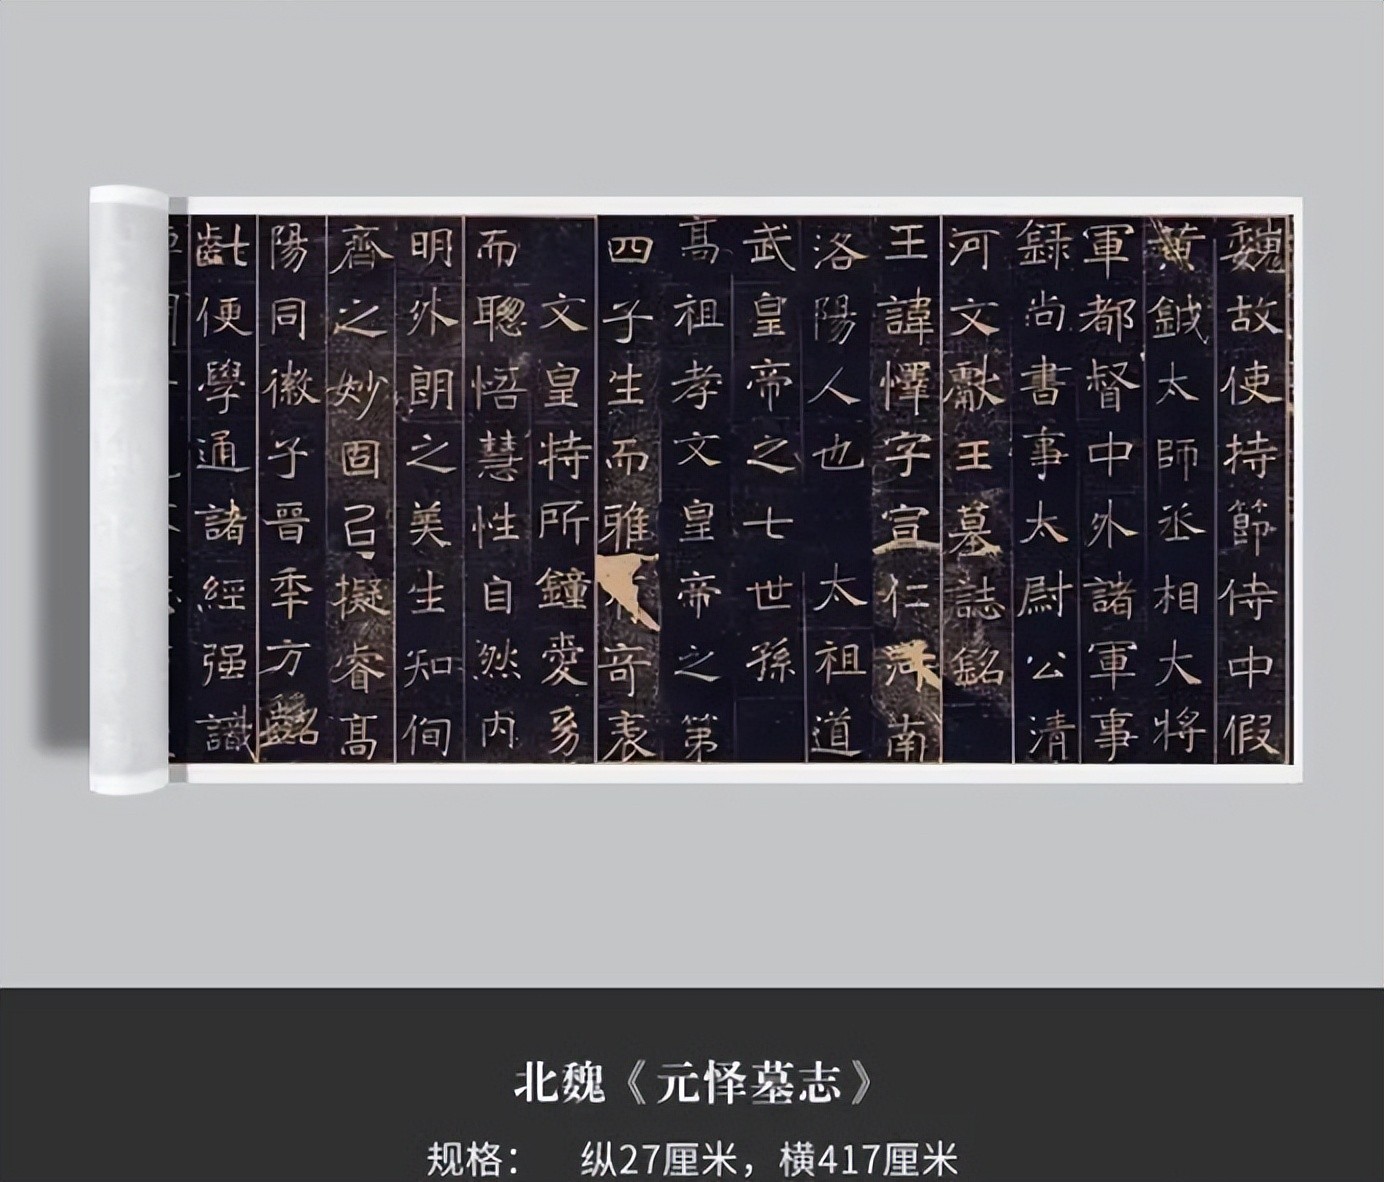 魏故使持節侍中假
黄鉞太師丞相大將
軍都督中外諸軍事
録尚書事太尉公清
河文獻王墓誌銘
王諱懌字宣仁河南
洛陽人也 太祖道
武皇帝之七世孫
高祖孝文皇帝之第
四子生而雅奇表
文皇特所鐘愛
而聰悟慧性自然内
明外朗之美生知徇
齊之妙固㠯擬睿高
陽同徽子晉季方
齔便學通諸經强識
北魏《元怿墓志》
规格： 纵27厘米，横417厘米